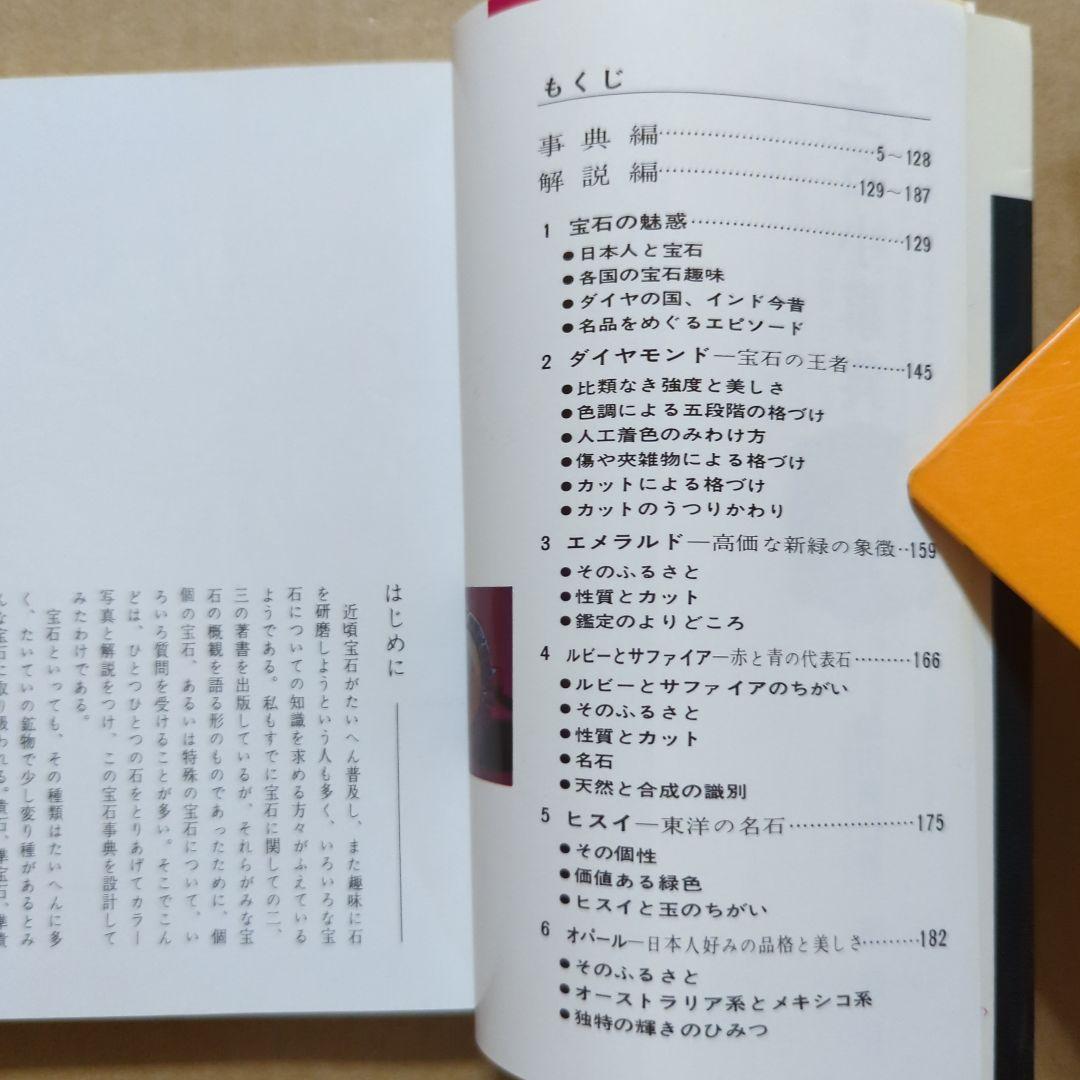 はじめに
近頃宝石がたいへん普及し、また趣味に石
を研磨しようという人も多く、いろいろな宝
石についての知識を求める方々がふえている
ようである。私もすでに宝石に関しての二、
三の著書を出版しているが、それらがみな宝
石の概観を語る形のものであったために、個
個の宝石、あるいは特殊の宝石について、い
ろいろ質問を受けることが多い。そこでこん
どは、ひとつひとつの石をとりあげてカラー
写真と解説をつけ、この宝石事典を設計して
みたわけである。
宝石といっても、その種類はたいへんに多
く、たいていの鉱物で少し変り種があるとみ
もくじ
事典編……………………………5～128
解説編…………………………129～187
1 宝石の魅惑……………………………129
●日本人と宝石
●各国の宝石趣味
●ダイヤの国、インド今昔
●名品をめぐるエピソード
2 ダイヤモンド―宝石の王者………145
●比類なき強度と美しさ
●色調による五段階の格づけ
●人工着色のみわけ方
●傷や夾雑物による格づけ
●カットによる格づけ
●カットのうつりかわり
3 エメラルド―高価な新緑の象徴‥159
●そのふるさと
●性質とカット
●鑑定のよりどころ
4 ルビーとサファイア―赤と青の代表石………166
●ルビーとサファイアのちがい
●そのふるさと
●性質とカット
●名石
●天然と合成の識別
5 ヒスイ―東洋の名石………………175
●その個性
●価値ある緑色
●ヒスイと玉のちがい
6 オパール―日本人好みの品格と美しさ………182
●そのふるさと
●オーストラリア系とメキシコ系
●独特の輝きのひみつ